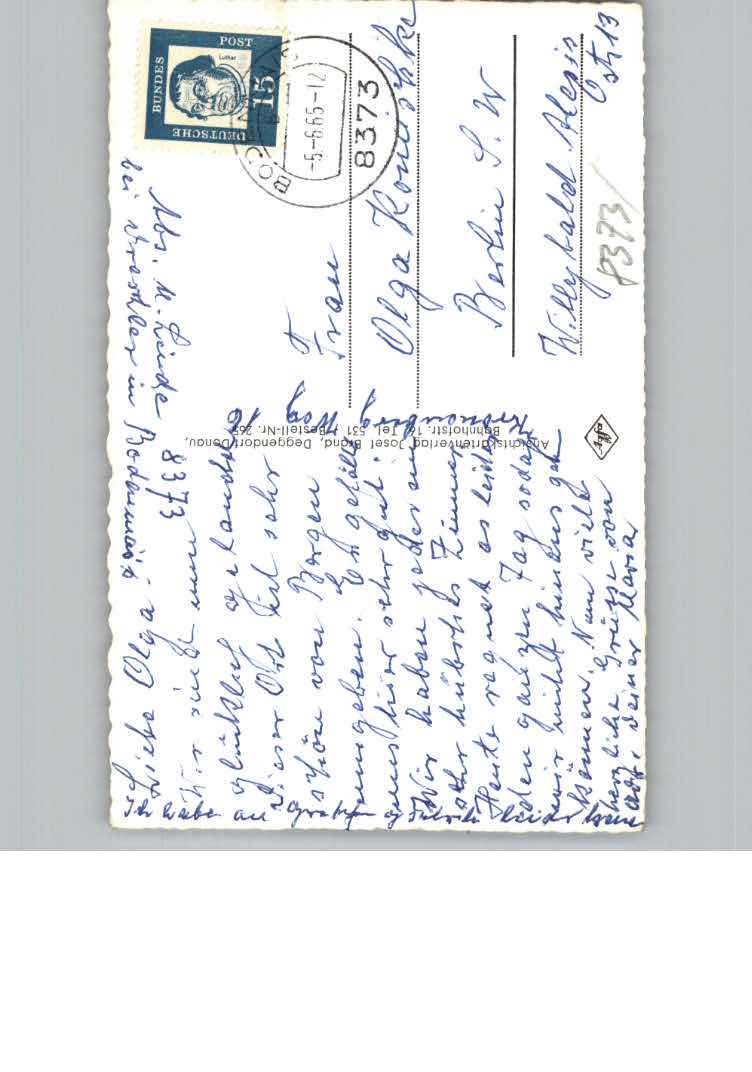 Abs. M. Leide 8373
bei Drechsler in Bodenmais
Liebe Olga!
Wir sind nun
glücklich gelandet
Dieser Ort ist sehr
schön von Bergen
umgeben. Es gefällt
uns hier sehr gut.
Wir haben jeder ein
sehr hübsches Zimmer
Heute regnet es leider
den ganzen Tag sodaß
wir nicht hinaus gehen
können. Nun viele
herzliche Grüsse von
deiner Maria
Ich habe an
leider
DEUTSCHE
BUNDES
POST
Luther
15
BODENMAIS
-5.-6.65-12
8373
Frau
Olga Konischke
Berlin S. W
Willybald Alexis
Str 13
8373/
Ansichtskartenverlag Josef Brand, Deggendorf/Donau,
Bahnhofstr. 16, Tel. 531 / Bestell-Nr. 265
Agfa